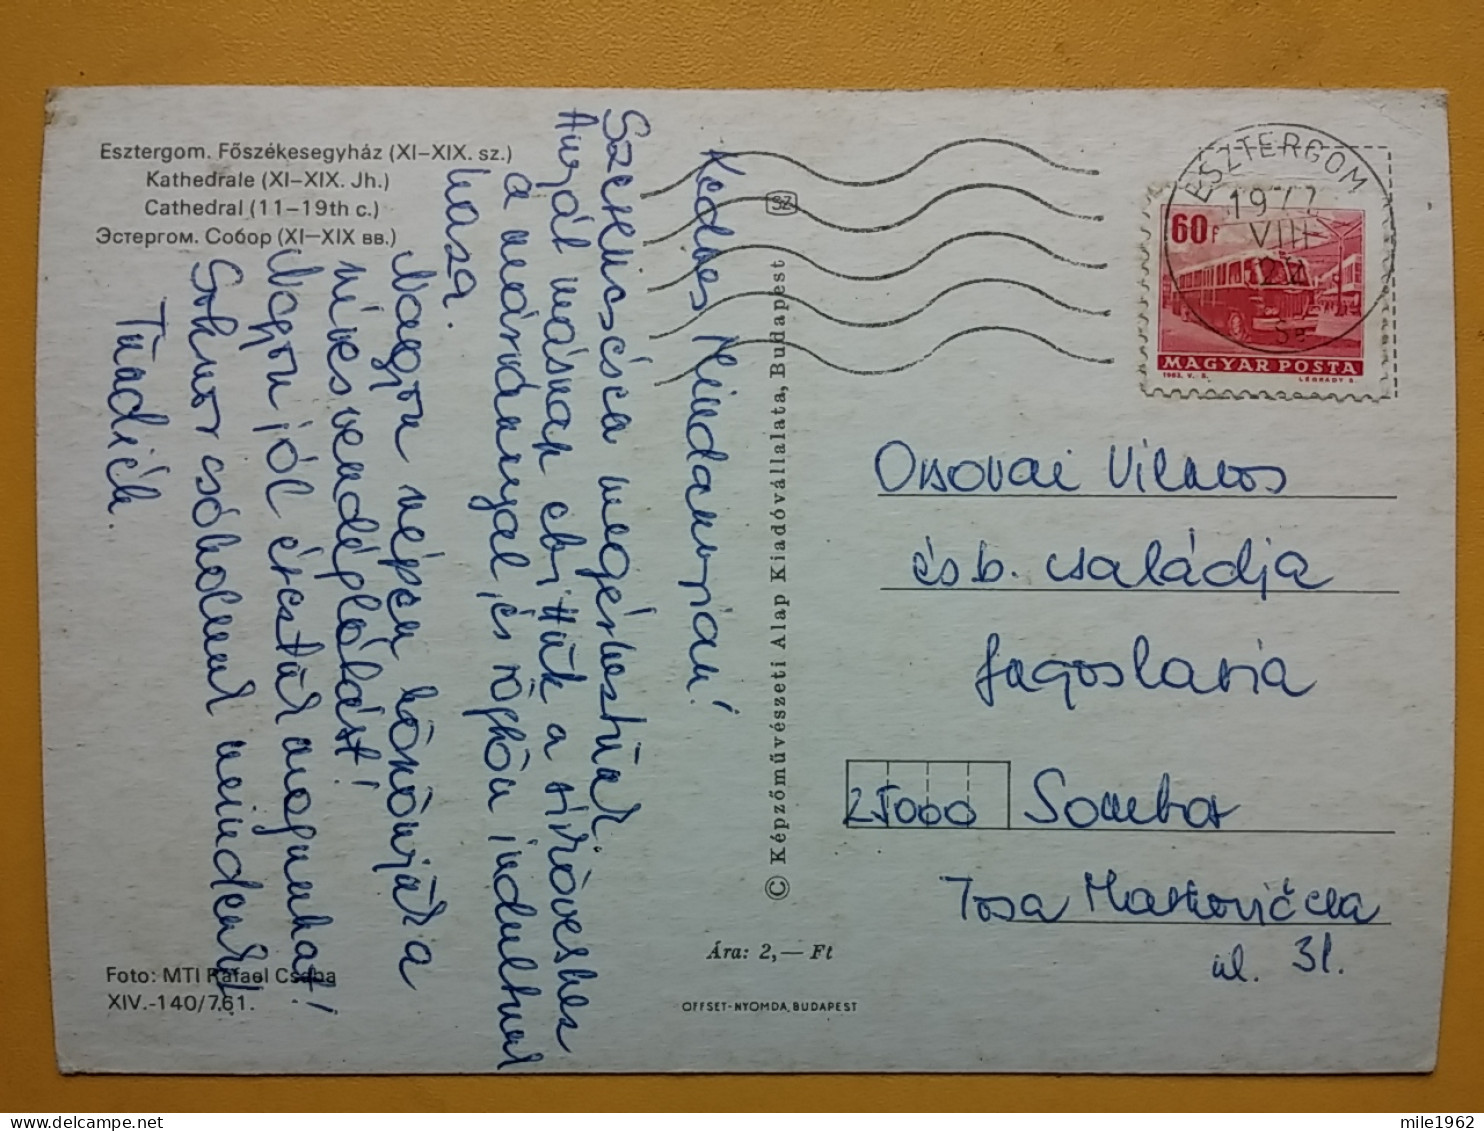 Esztergom. Főszékesegyház (XI–XIX. sz.)
Kathedrale (XI–XIX. Jh.)
Cathedral (11–19th c.)
Эстергом. Собор (XI–XIX вв.)
Kedves Mindannyian!
Szerencsésen megérkeztünk.
másnap a sírköveshez
a márvánnyal, és rögtön indultunk
haza.
Nagyon szépen köszönjük a
szíves vendéglátást!
Nagyon jól éreztük magunkat!
Sokszor csókolunk mindenkit
Tündiék.
Foto: MTI Rafael Csaba
XIV.-140/761.
SZ
© Képzőművészeti Alap Kiadóvállalata, Budapest
Ára: 2,— Ft
OFFSET-NYOMDA, BUDAPEST
ESZTERGOM
1977
VIII
60f
MAGYAR POSTA
1963. V. S.
LÉGRÁDY S.
Orsovai Vilmos
és b. családja
Jugoslavia
25000 Sombor
Tose Markovića
ul. 31.
mile1962